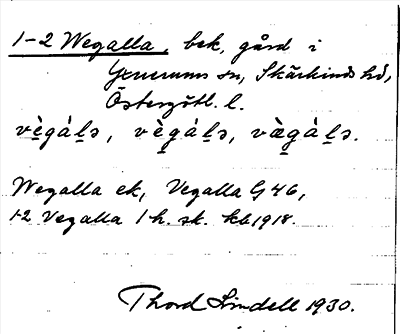 1-2 Wegalla, bek, gård i
Yxnerums sn, Skärkinds hd,
Östergötl. l.
vègáḻə, vègáḻə, vægàḻə.
Wegalla ek, Vegalla G 46,
1-2 Vegalla 1 h. sk. kb 1918.
Thord Lindell 1930.